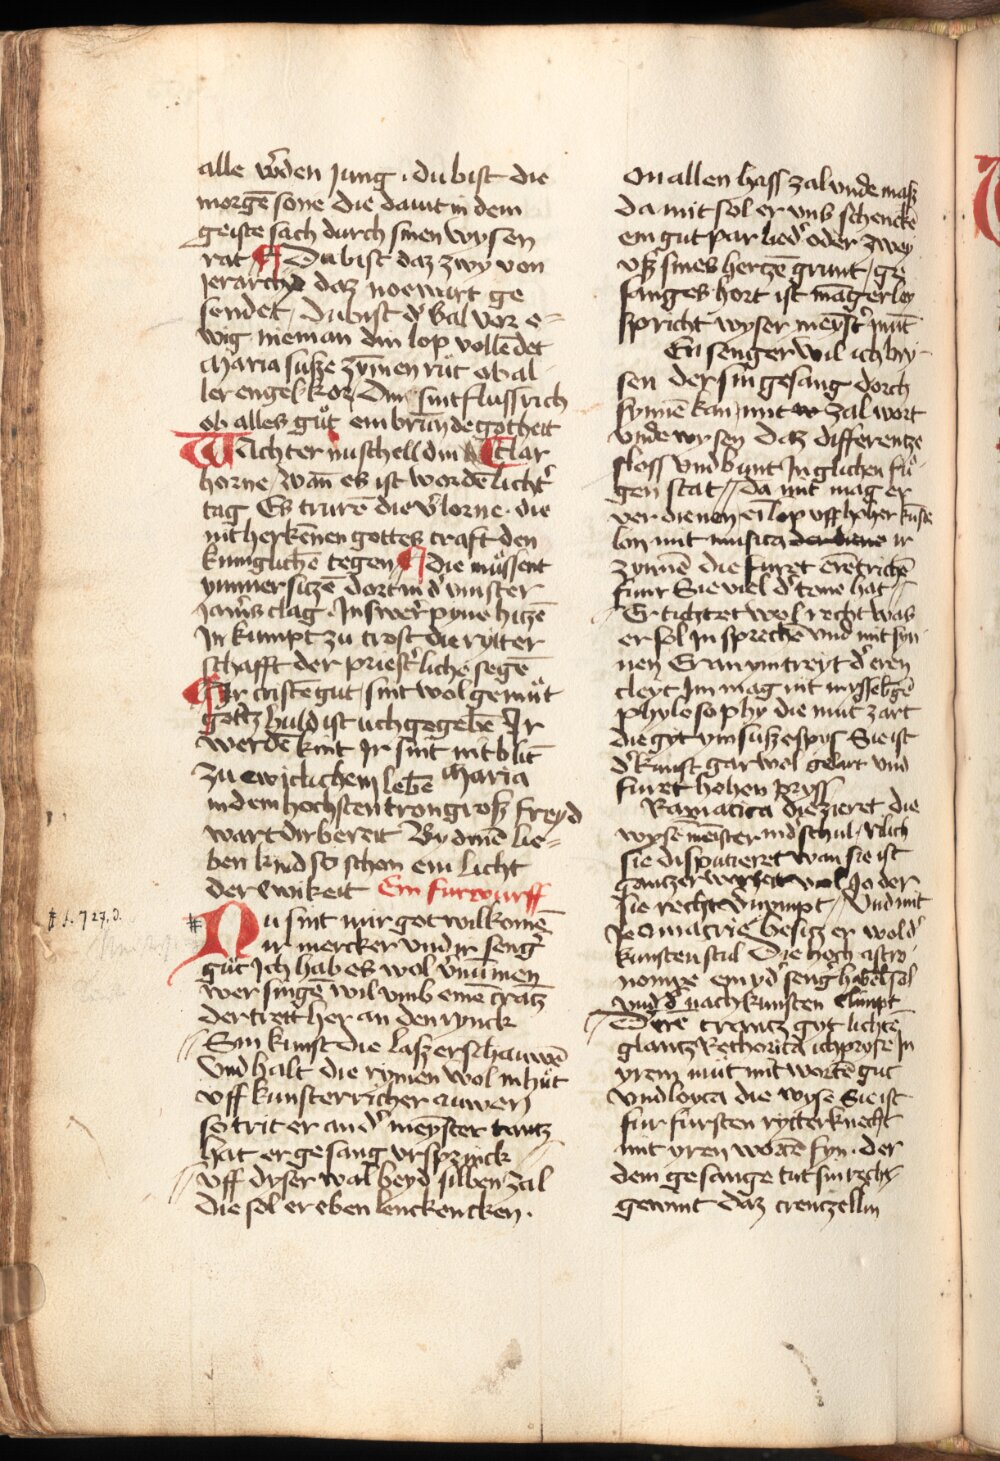 alle v̓den Jung . du bist die
morgē sone die dauit in dem
geiste sach durch sinen wysen
rat Du bist daz zwy von
daz noe wart ge
sendet / du bist d̓ val vor e=
wig nieman din lop vollēdet
Maria susze zȳmen rüt ob al
ler engel kor / Din sint flussrich
ob alles güt ein brūn de gotheit
WAchter nu schell din Clar
horne / wān es ist wordē lichtˀ
tag Es trurē die v̓lorne . die
nit herkēnen gottes craft den
kūniglichē tegen / die müssent
ymmer sizē dort in d̓ vinster
Jam̓s clag . In swer̓ pyne hitzē
In kumpt zu trost die ritter
schafft der priest̓liche segē
Ir cristē gut / sint wol gemüt
gottz huld ist uch gegebē Ir
werdē kint Ir sint nit blīt
zu ewiclichem lebē Maria
in dem hochsten tron grosz freyd
wart dir bereit By dinē lie=
ben kind so schon ein licht
der ewikeit Ein furwurff
# s. 727, d.
NU sint mir got wilkomē
ir mercker vnd ir seng̓
güt Ich hab es wol v̓nūmen
wer singē wil vmb einē crātz
der trett her an den rynck
Sin kunst die lasz er schauwē
Vnd halt die rymen wol in hüt
vff kunsterricher auwen
so trit er an d̓ meyster tantz
hat er gesang vrsprinck
vff dyser wal beyd silben zal
die sol er eben lenckencken .
On allen hass zal vnde masz
Da mit sol er vns schenckē
ein gut par lied̓ oder zwey
vsz sines hertzē grunt / ge
sanges hort ist māgerley
spricht wyser meyst̓ mūt
En senger wil ich bry
sen der sin gesang dorch
symē kan / mit zal wort
vnde wysen Daz differentze
floss vnd bunt In glichen fü
gen stat // Da mit mag er
verdienen ei lop vff hoher kunste
lon mit musica ir
zymē die furet erētrichē
funr Sie viel d̓ tone hat //
Er tichtet wol recht was
er sol Jn sprechē vnd mit syn
nen Gran vmtreyt d̓ eren
cleyt Im mag nit myssebgē
phylosophy die mut zart
die gyt ym susze spys Sie ist
d̓ kunst gar wol gelart vnd
furet hohen pryss
Ramatica die zieret die
wysē meister in d schul / Rlich
sie disputieret wan sie ist
gantzer wol Jo der
sie recht / Vnd mit
Jeomatrie besitz er wol d̓
kunsten stul Die hoch astro
nomye ein yd̓ seng̓ haben sol
vnd d̓ nach kunsten clumpt
Dere crantz gyt lichtē
glantz Rethorica ich pryse Jn
yrem mut mit wortē gut
vnd loyca die wyse Sie ist
fur fursten rytter knecht
mit yren wortē syn . der
dem gesange tut sin recht
gewint daz crentzellin